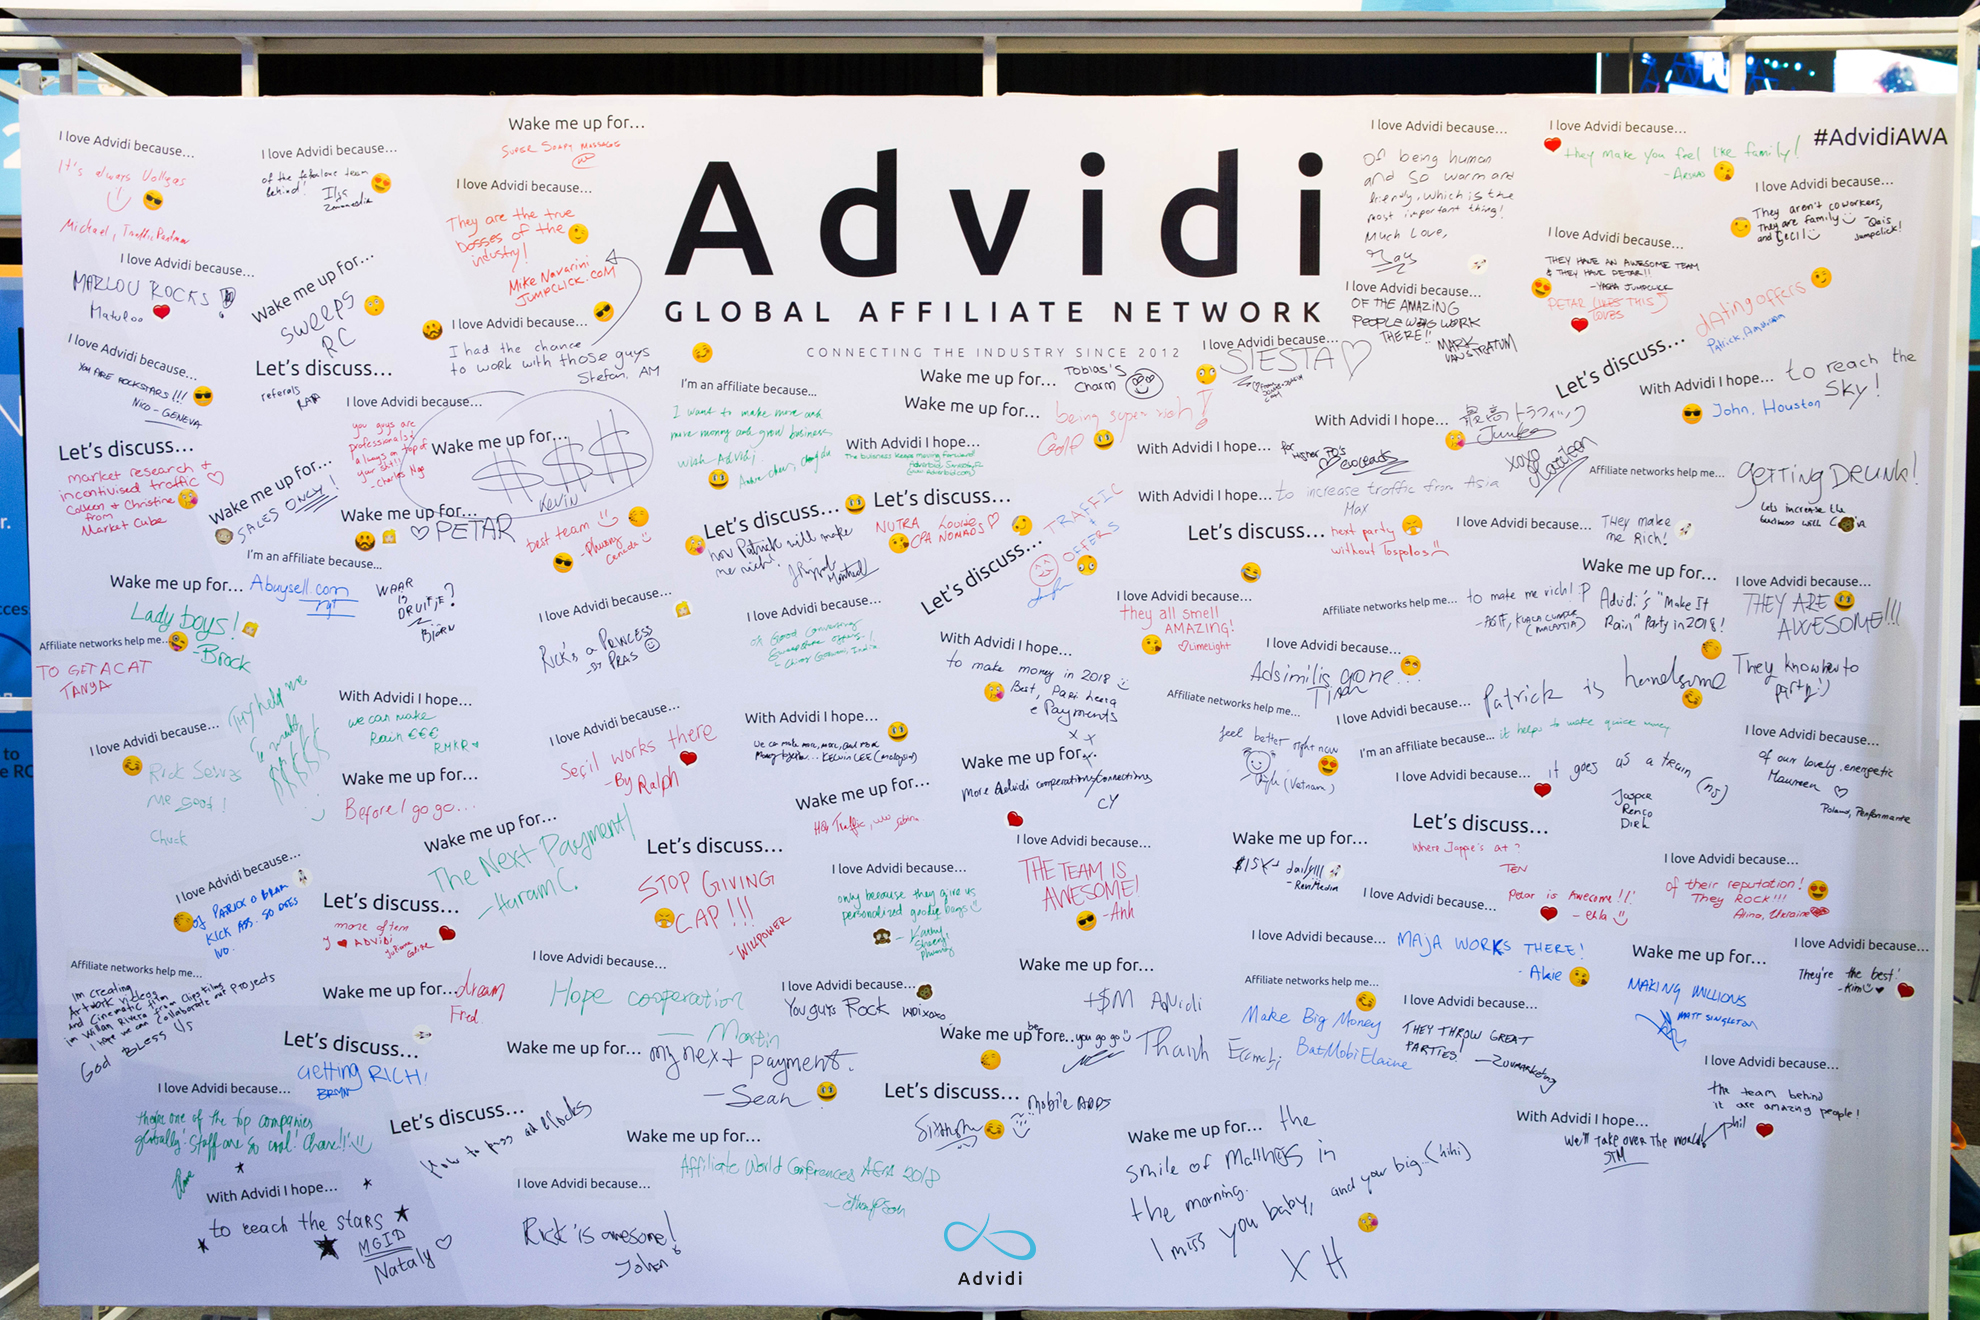 Advidi
GLOBAL AFFILIATE NETWORK
CONNECTING THE INDUSTRY SINCE 2012
#AdvidiAWA
I love Advidi because...
It's always Vollgas
Michael, TrafficPartner
I love Advidi because...
of the fabulous team
behind!
Wake me up for...
SUPER SOAPY MASSAGES
I love Advidi because...
They are the true
bosses of the
industry!
Mike Navarini
JUMPCLICK.COM
I love Advidi because...
Of being human
and so warm and
friendly, which is the
most important thing!
Much Love,
I love Advidi because...
they make you feel like family!
I love Advidi because...
They aren't coworkers,
They are family
and Cecil
- Qais
Jumpclick!
I love Advidi because...
THEY HAVE AN AWESOME TEAM
& THEY HAVE PETAR!!
- YASHA JUMPCLICK
PETAR LIKES THIS
LOVES
I love Advidi because...
MARLOU ROCKS!
I love Advidi because...
OF THE AMAZING
PEOPLE WORK
THERE!!
MARK
VAN STRATUM
Wake me up for...
sweeps
RC
I love Advidi because...
I had the chance
to work with those guys
Stefan, AM
Let's discuss...
dAting offers
Patrick, American
I love Advidi because...
YOU ARE ROCKSTARS!!!
NICO - GENEVA
Let's discuss...
referrals
I love Advidi because...
SIESTA
With Advidi I hope...
to reach the
SKY!
John, Houston
Wake me up for...
TOBIAS'S
CHARM
I'm an affiliate because...
I want to make more and
more money and grow business
with Advidi
Wake me up for...
being super rich!
I love Advidi because...
you guys are
professionals &
always on top of
your shit!!
- Charles Ngo
Wake me up for...
$$$
Kevin
With Advidi I hope...
The business keeps moving forward
With Advidi I hope...
for
Higher PO's
With Advidi I hope...
最高トラフィック
Junko
xoxo
Let's discuss...
market research &
incentivised traffic
Colleen & Christine
from
Market Cube
Wake me up for...
SALES ONLY!
Affiliate networks help me...
GETTING DRUNK!
Lets increase the
business with
Wake me up for...
PETAR
best team
- Phuong
Canada
Let's discuss...
how Patrick will make
me rich!
Montreal
Let's discuss...
NUTRA
CPA NOMADS
Let's discuss...
TRAFFIC
+
OFFERS
With Advidi I hope...
to increase traffic from Asia
Max
Let's discuss...
next party
without Tospolos
I love Advidi because...
THEY make
me Rich!
I'm an affiliate because...
Abuysell.com
Wake me up for...
Lady boys!
- Brock
WAAR
IS
DRUIFJE?
BJÖRN
Affiliate networks help me...
TO GET A CAT
TANYA
I love Advidi because...
RICK'S A PRINCESS
PRAS
I love Advidi because...
of Good Converting
I love Advidi because...
they all smell
AMAZING!
LimeLight
Affiliate networks help me...
to make me rich! :P
- ASIF, KUALA LUMPUR
(MALAYSIA)
Wake me up for...
Advidi's "Make It
Rain" Party in 2018!
I love Advidi because...
THEY ARE
AWESOME!!!
With Advidi I hope...
to make money in 2018
I love Advidi because...
Adsimilis gone...
I love Advidi because...
Patrick is handsome
They know how to
party
With Advidi I hope...
we can make
Rain €€€
I love Advidi because...
Rick serves
me good!
Chuck
I love Advidi because...
Seçil works there
- By Ralph
With Advidi I hope...
Affiliate networks help me...
feel better right now
(Vietnam)
I'm an affiliate because...
it helps to make quick money
I love Advidi because...
of our lovely, energetic
Maureen
Poland, Performante
Wake me up for...
More Advidi cooperations/connections
CY
I love Advidi because...
it goes as a train (NS)
Jasper
Renco
Dirk
Wake me up for...
Before I go go...
Wake me up for...
Wake me up for...
The Next Payment!
- Haram C.
Let's discuss...
STOP GIVING
CAP!!!
- WILLPOWER
Let's discuss...
Where Jappe's at?
TEN
Wake me up for...
$15K+ daily!!!
- RevMedia
I love Advidi because...
THE TEAM IS
AWESOME!
- Anh
I love Advidi because...
only because they give us
personalized goody bags
I love Advidi because...
of PATRICK & BRAM
KICK ASS. SO DOES
IVO.
Let's discuss...
more of ten
ADVIDI
I love Advidi because...
of their reputation!
They ROCK!!!
Alina, Ukraine
I love Advidi because...
Petar is Awesome!!
I love Advidi because...
MAJA WORKS THERE!
Wake me up for...
MAKING MILLIONS
MATT SINGLETON
I love Advidi because...
They're the best!
- Kim
Affiliate networks help me...
Im creating
Artwork videos
and Cinematic film
I hope we can Collaborate our Projects
God BLESS US
Wake me up for...
dream
Fred.
I love Advidi because...
Hope cooperation
- Martin
I love Advidi because...
You guys ROCK
Wake me up for...
+$M Advidi
Affiliate networks help me...
Make Big Money
BatMobiElaine
I love Advidi because...
THEY THROW GREAT
PARTIES!
Wake me up before... you go go
Thank
Let's discuss...
GETTING RICH!
Wake me up for...
my next payment.
- Sean
I love Advidi because...
the team behind
it are amazing people!
phil
I love Advidi because...
they're one of the top companies
globally! Staff are so cool!
Let's discuss...
How to pass ad blocks
Let's discuss...
Mobile ADDS
Wake me up for...
Affiliate World Conferences ASIA 2018
Wake me up for...
the
smile of
in
the morning.
I miss you baby, and your big..(hihi)
XH
With Advidi I hope...
We'll take over the world
STM
With Advidi I hope...
to reach the stars
MGID
Nataly
I love Advidi because...
Rick is awesome!
Johan
Advidi